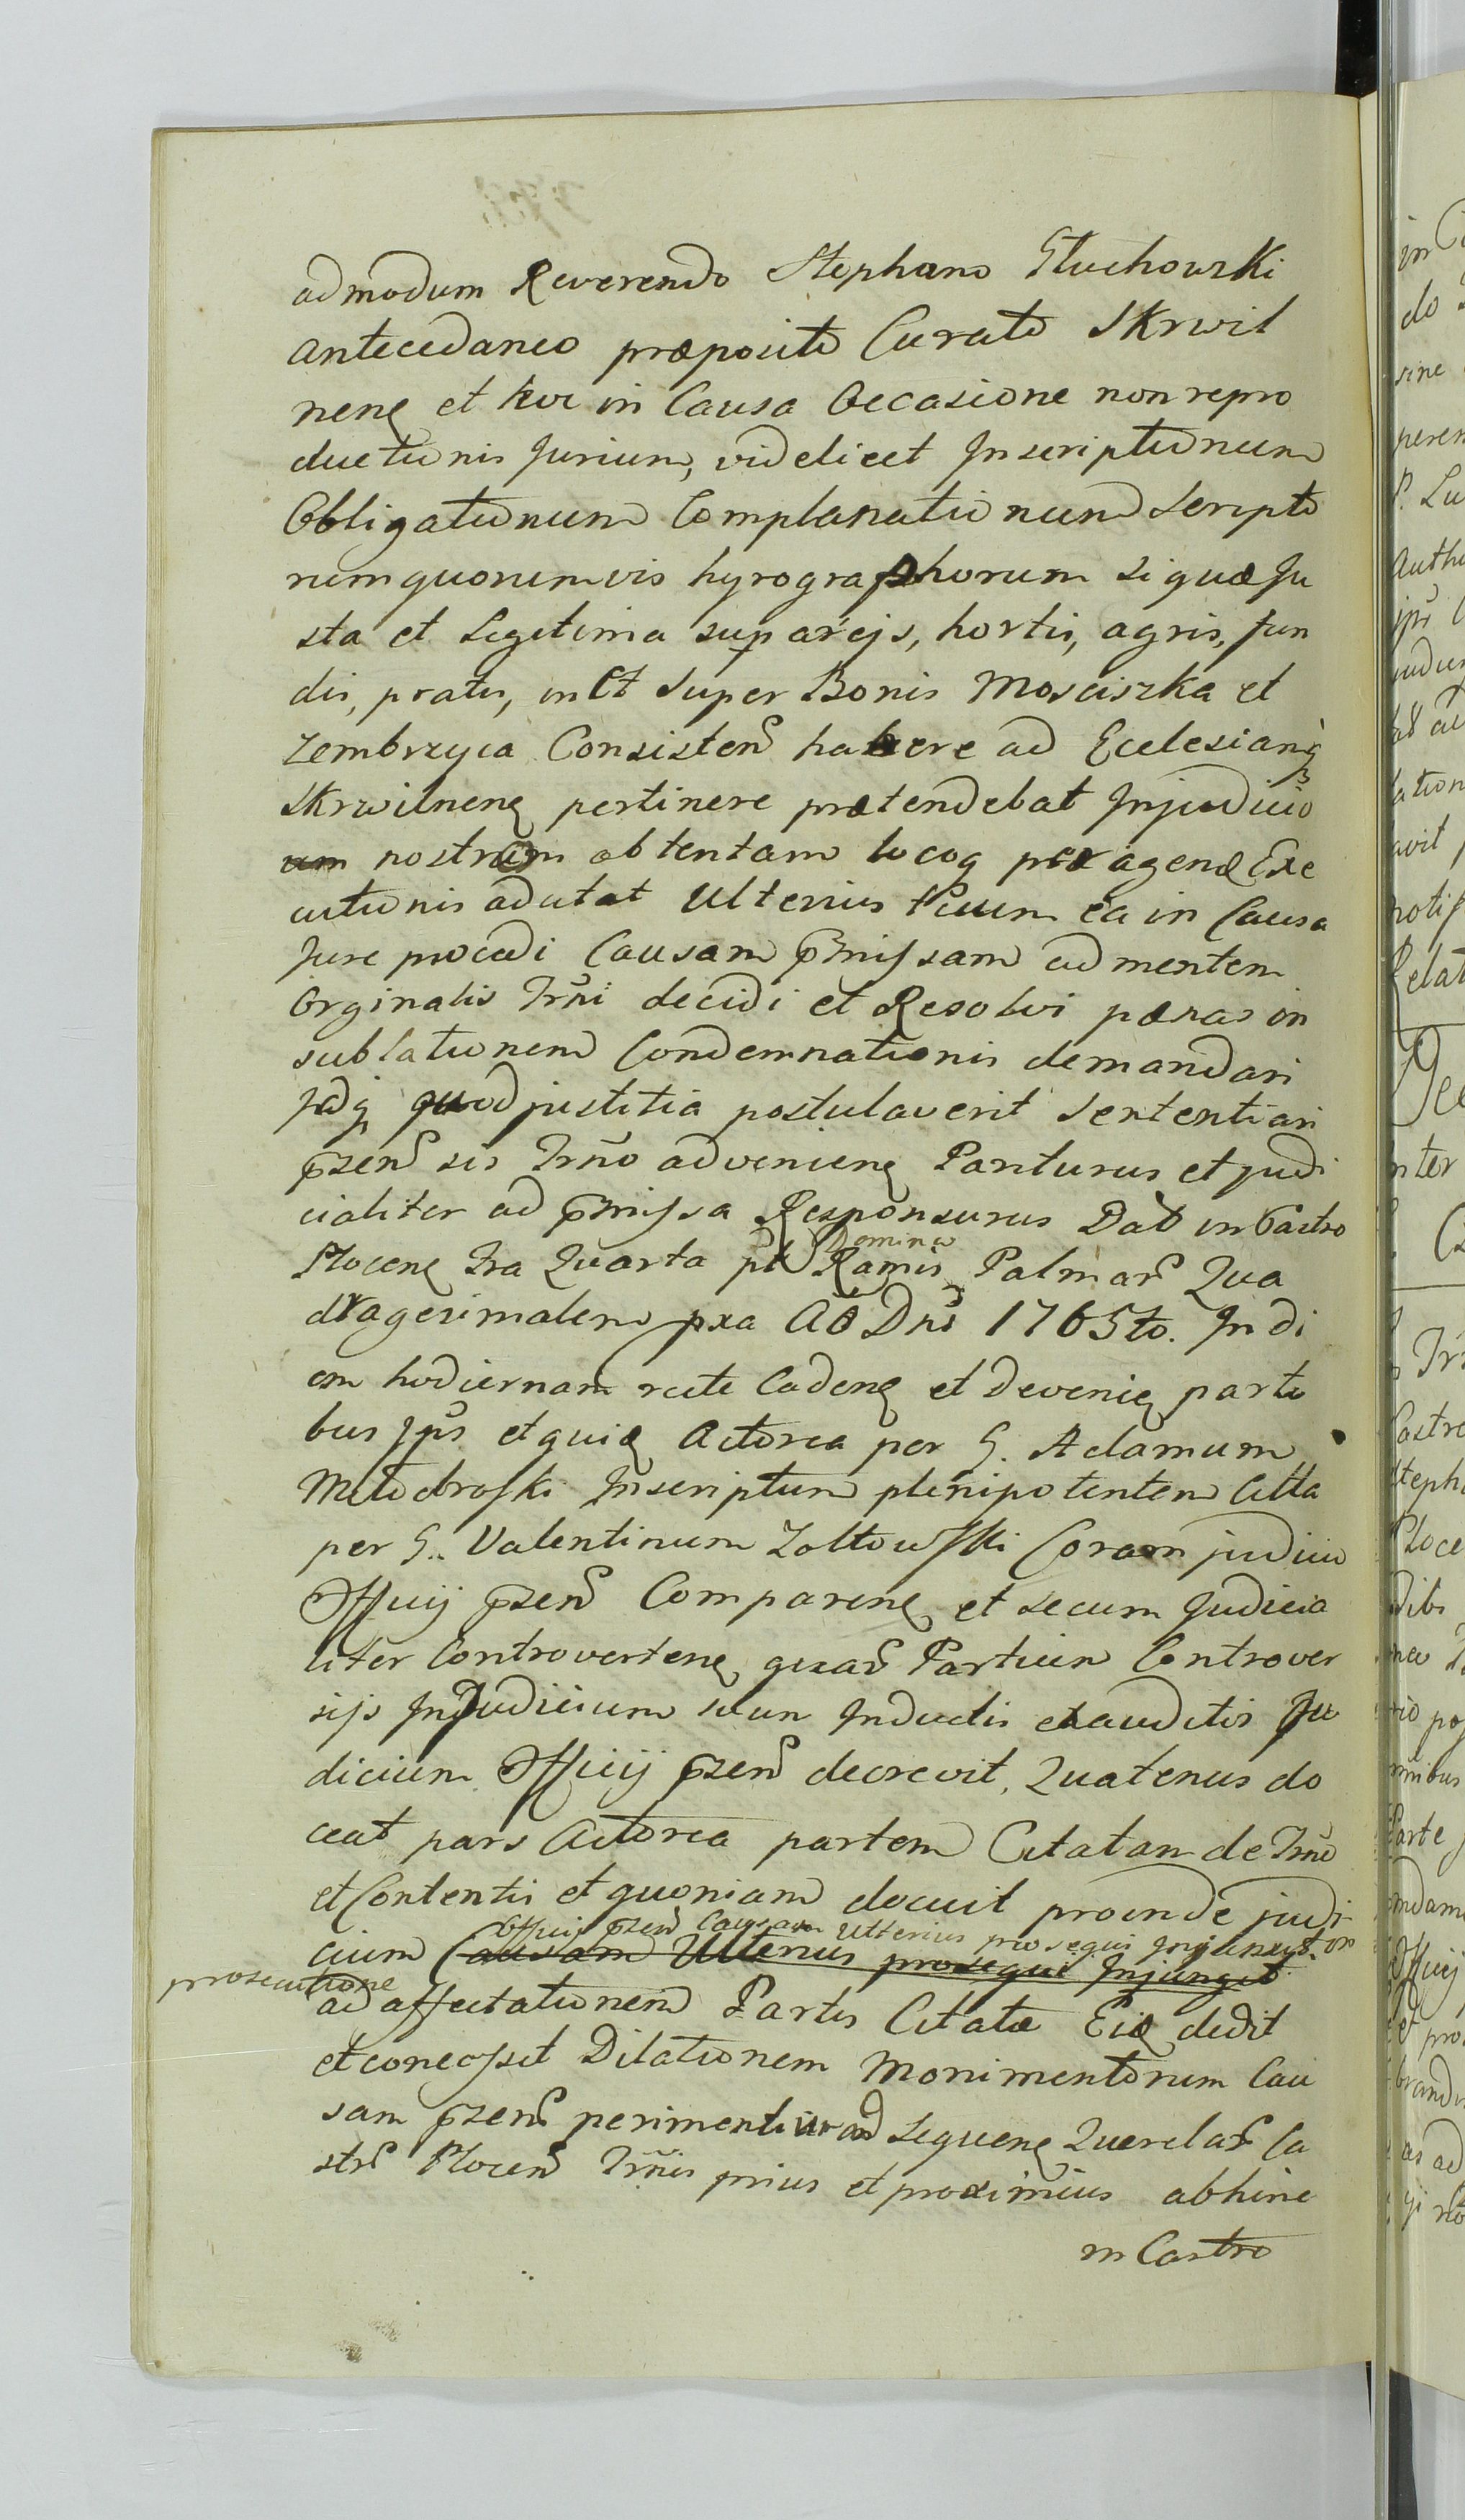 admodum Reverendo Stephano Głuchowski
antecedaneo præposito Curato Skrwil
nenę et hoc in Causa Occasione non repro
ductionis Jurium, videlicet Inscriptionum
Obligationum Complanationum Scripto
rum quorumvis hyrographorum si quæ Ju
sta et Legitima sup areis, hortis, agris, fun
dis, pratis, in Et super Bonis Mosciszka et
Zembrzyca Consisten habere ad Ecclesiam
Skrwilnenę pertinere prætendebat Injudicio
um nostram obtentam locoq peragenæ Exe
cutionis adutat Ulterius in Causa
Jure procedi Causam pmissam ad mentem
Orginalis Trni decidi et Resolvi pænas in
sublationem Condemnationis demandari
Idq quod justitia postulaverit Sententiari
pzen sis Trno advenienę Pariturus et judi
cialiter ad pmissa Responsurus Dat in Castro
Domina
Plocenę fra Quarta pt Ramis Palmar Qua
dragesimalem pxa Ao Dni 1765to. In di
em hodiernam recte Cadenę et devenię parti
bus Ips et quię Actorea per G. Adamum
Młodroski Inscriptum plenipotentem Citta
per G. Valentinum Zołtowski Coram judicio
Officij pzen Comparenę et secum Judicia
liter Controvertenę quar Partium Controver
sijs In Judicium suum Inductis et auditis Ju
dicium Officij pzen decrevit, Quatenus do
ceat pars Actorea partem Citatam de Trno
et Contentis et quoniam docuit proinde judi
Officij pzen Causam Ulterius prosequi Injunxit. in
cium Causam Ulterius prosequi Injungit
prosecutione
ad affectationem Partis Citatæ Eię dedit
et concessit Dilationem Monimentorum Cau
sam pzen perimentium ad Sequenę Querelar Ca
str Plocen Trnis prius et proximius abhinc
in Castro